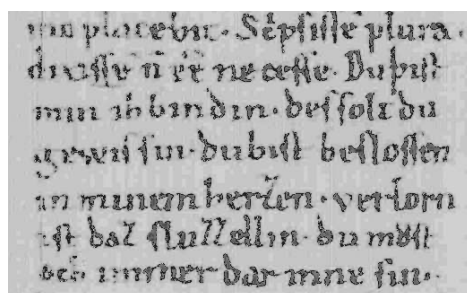 placebit. Scripsisse plura.
dixisse n̄ ēē necesse. Du bist
min ih bin din. des solt du
gewis sin. du bist beslossen
in minem herzen. verlorn
ist daz sluzzellin. du můst
och immer dar inne sin.